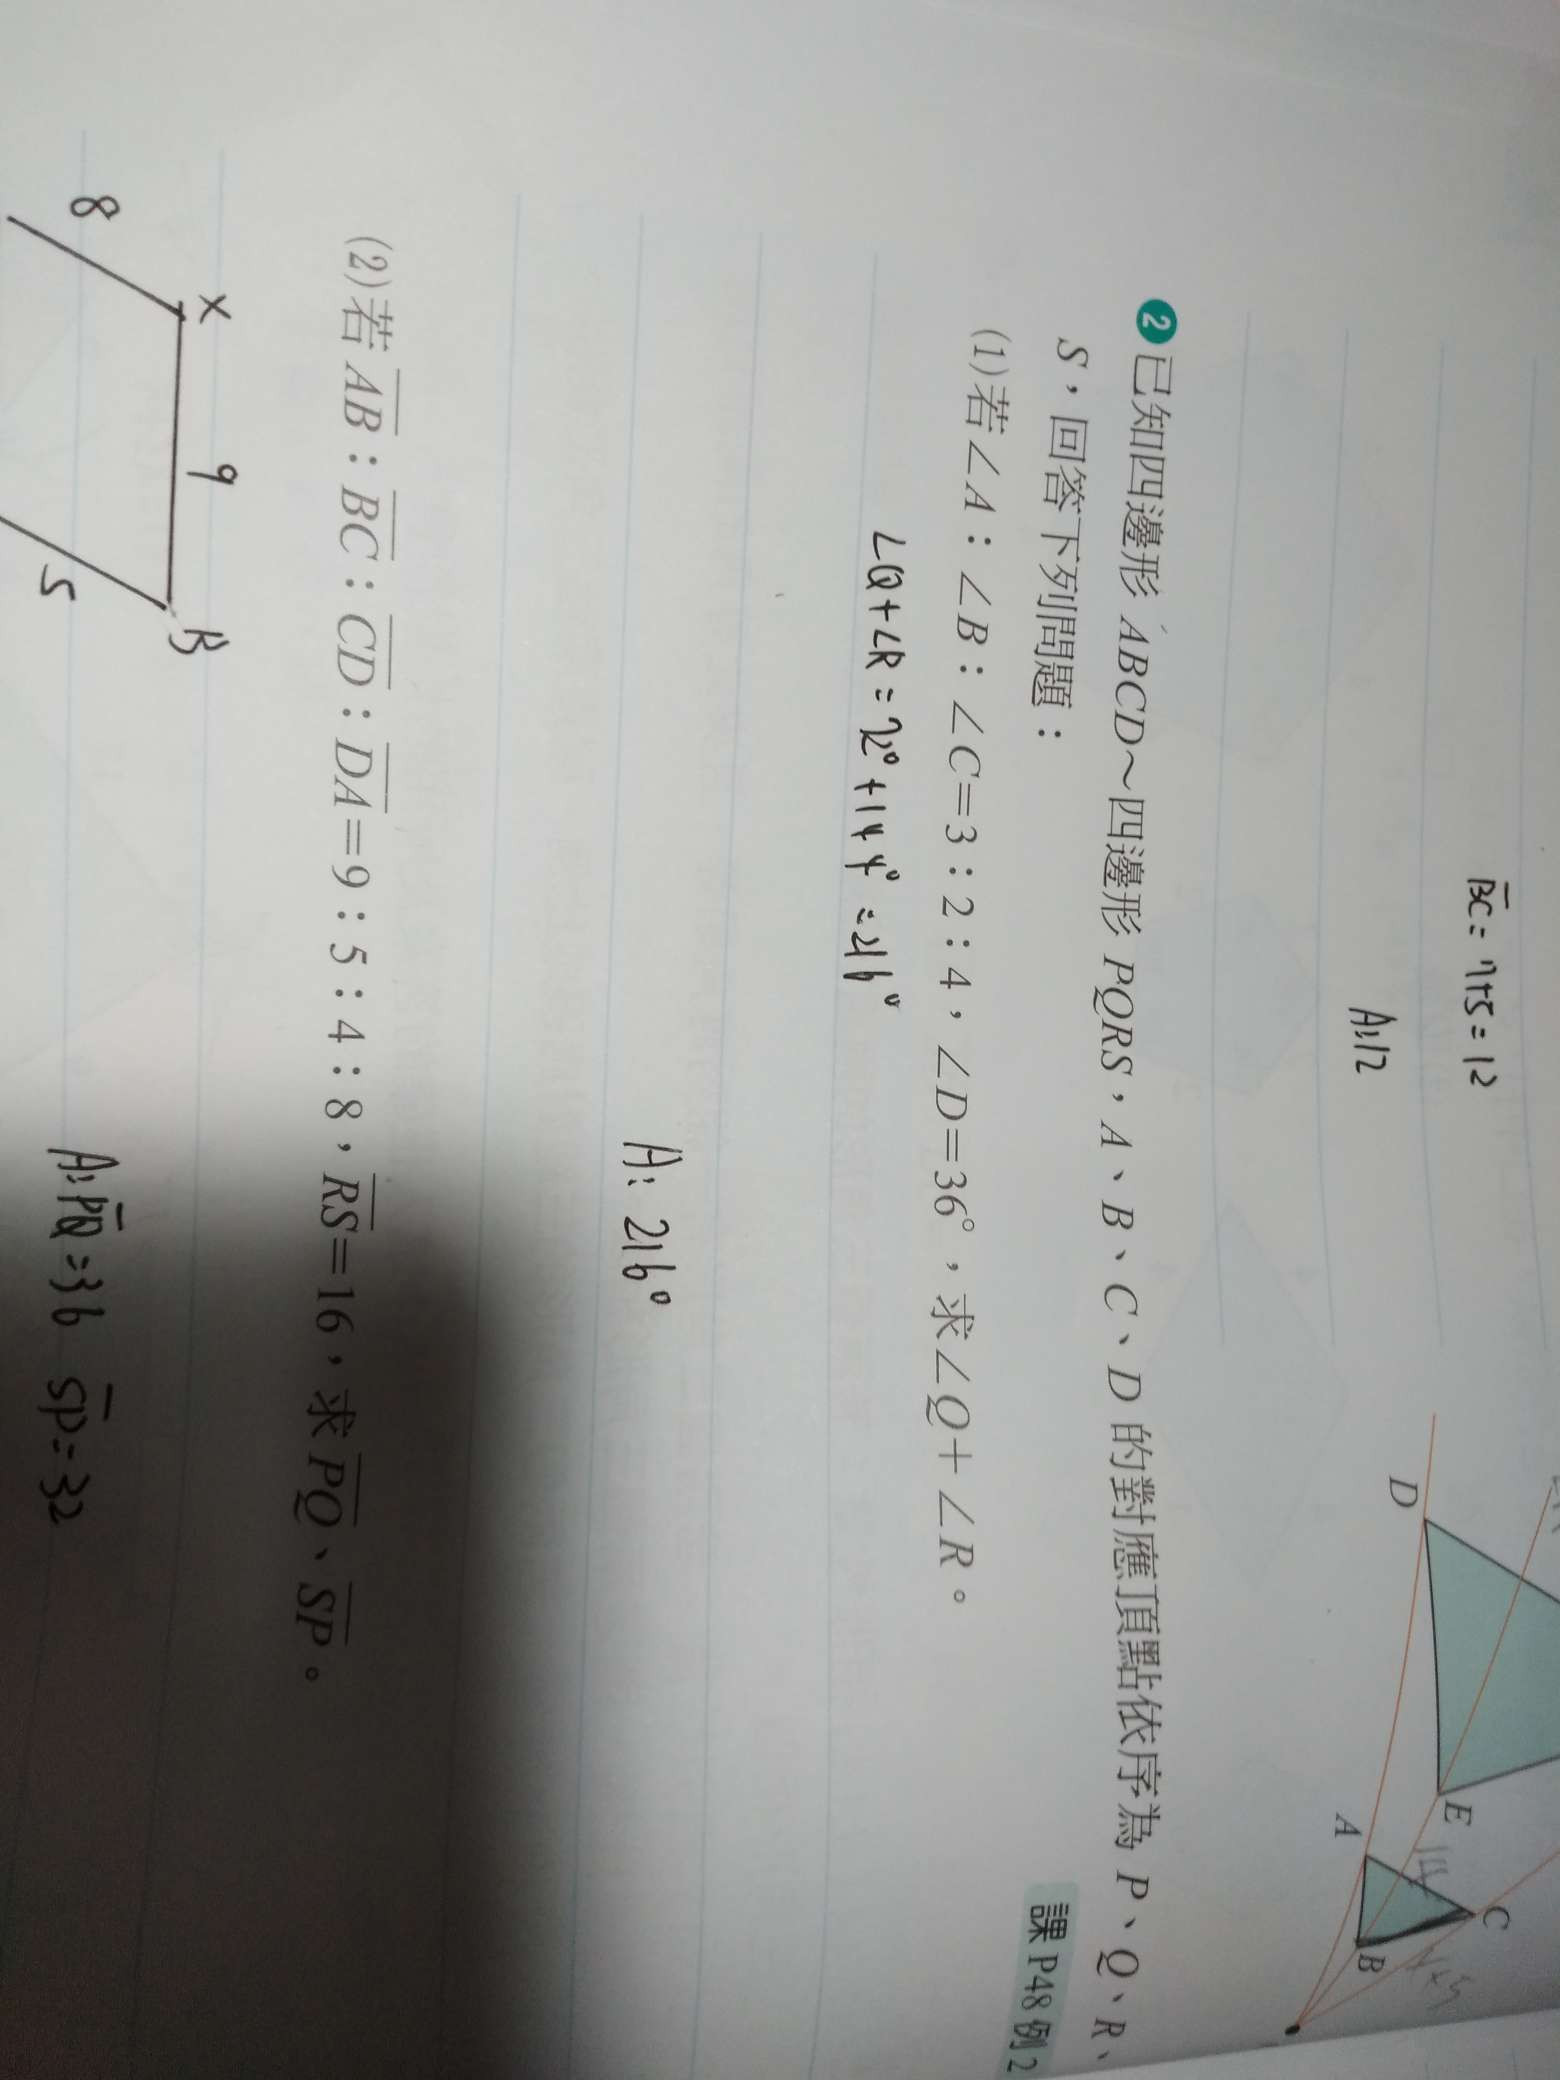 BC = 7+5 = 12
A:12
D
E
A
C
B
14
❷已知四邊形 ABCD～四邊形 PQRS，A、B、C、D 的對應頂點依序為 P、Q、R、
S，回答下列問題：
課 P48 例 2
(1)若∠A：∠B：∠C＝3：2：4，∠D＝36°，求∠Q＋∠R。
∠Q+∠R = 72° + 144° = 216°
A: 216°
(2)若 AB：BC：CD：DA＝9：5：4：8，RS＝16，求 PQ、SP。
X
9
B
8
5
A: PQ = 36 SP = 32